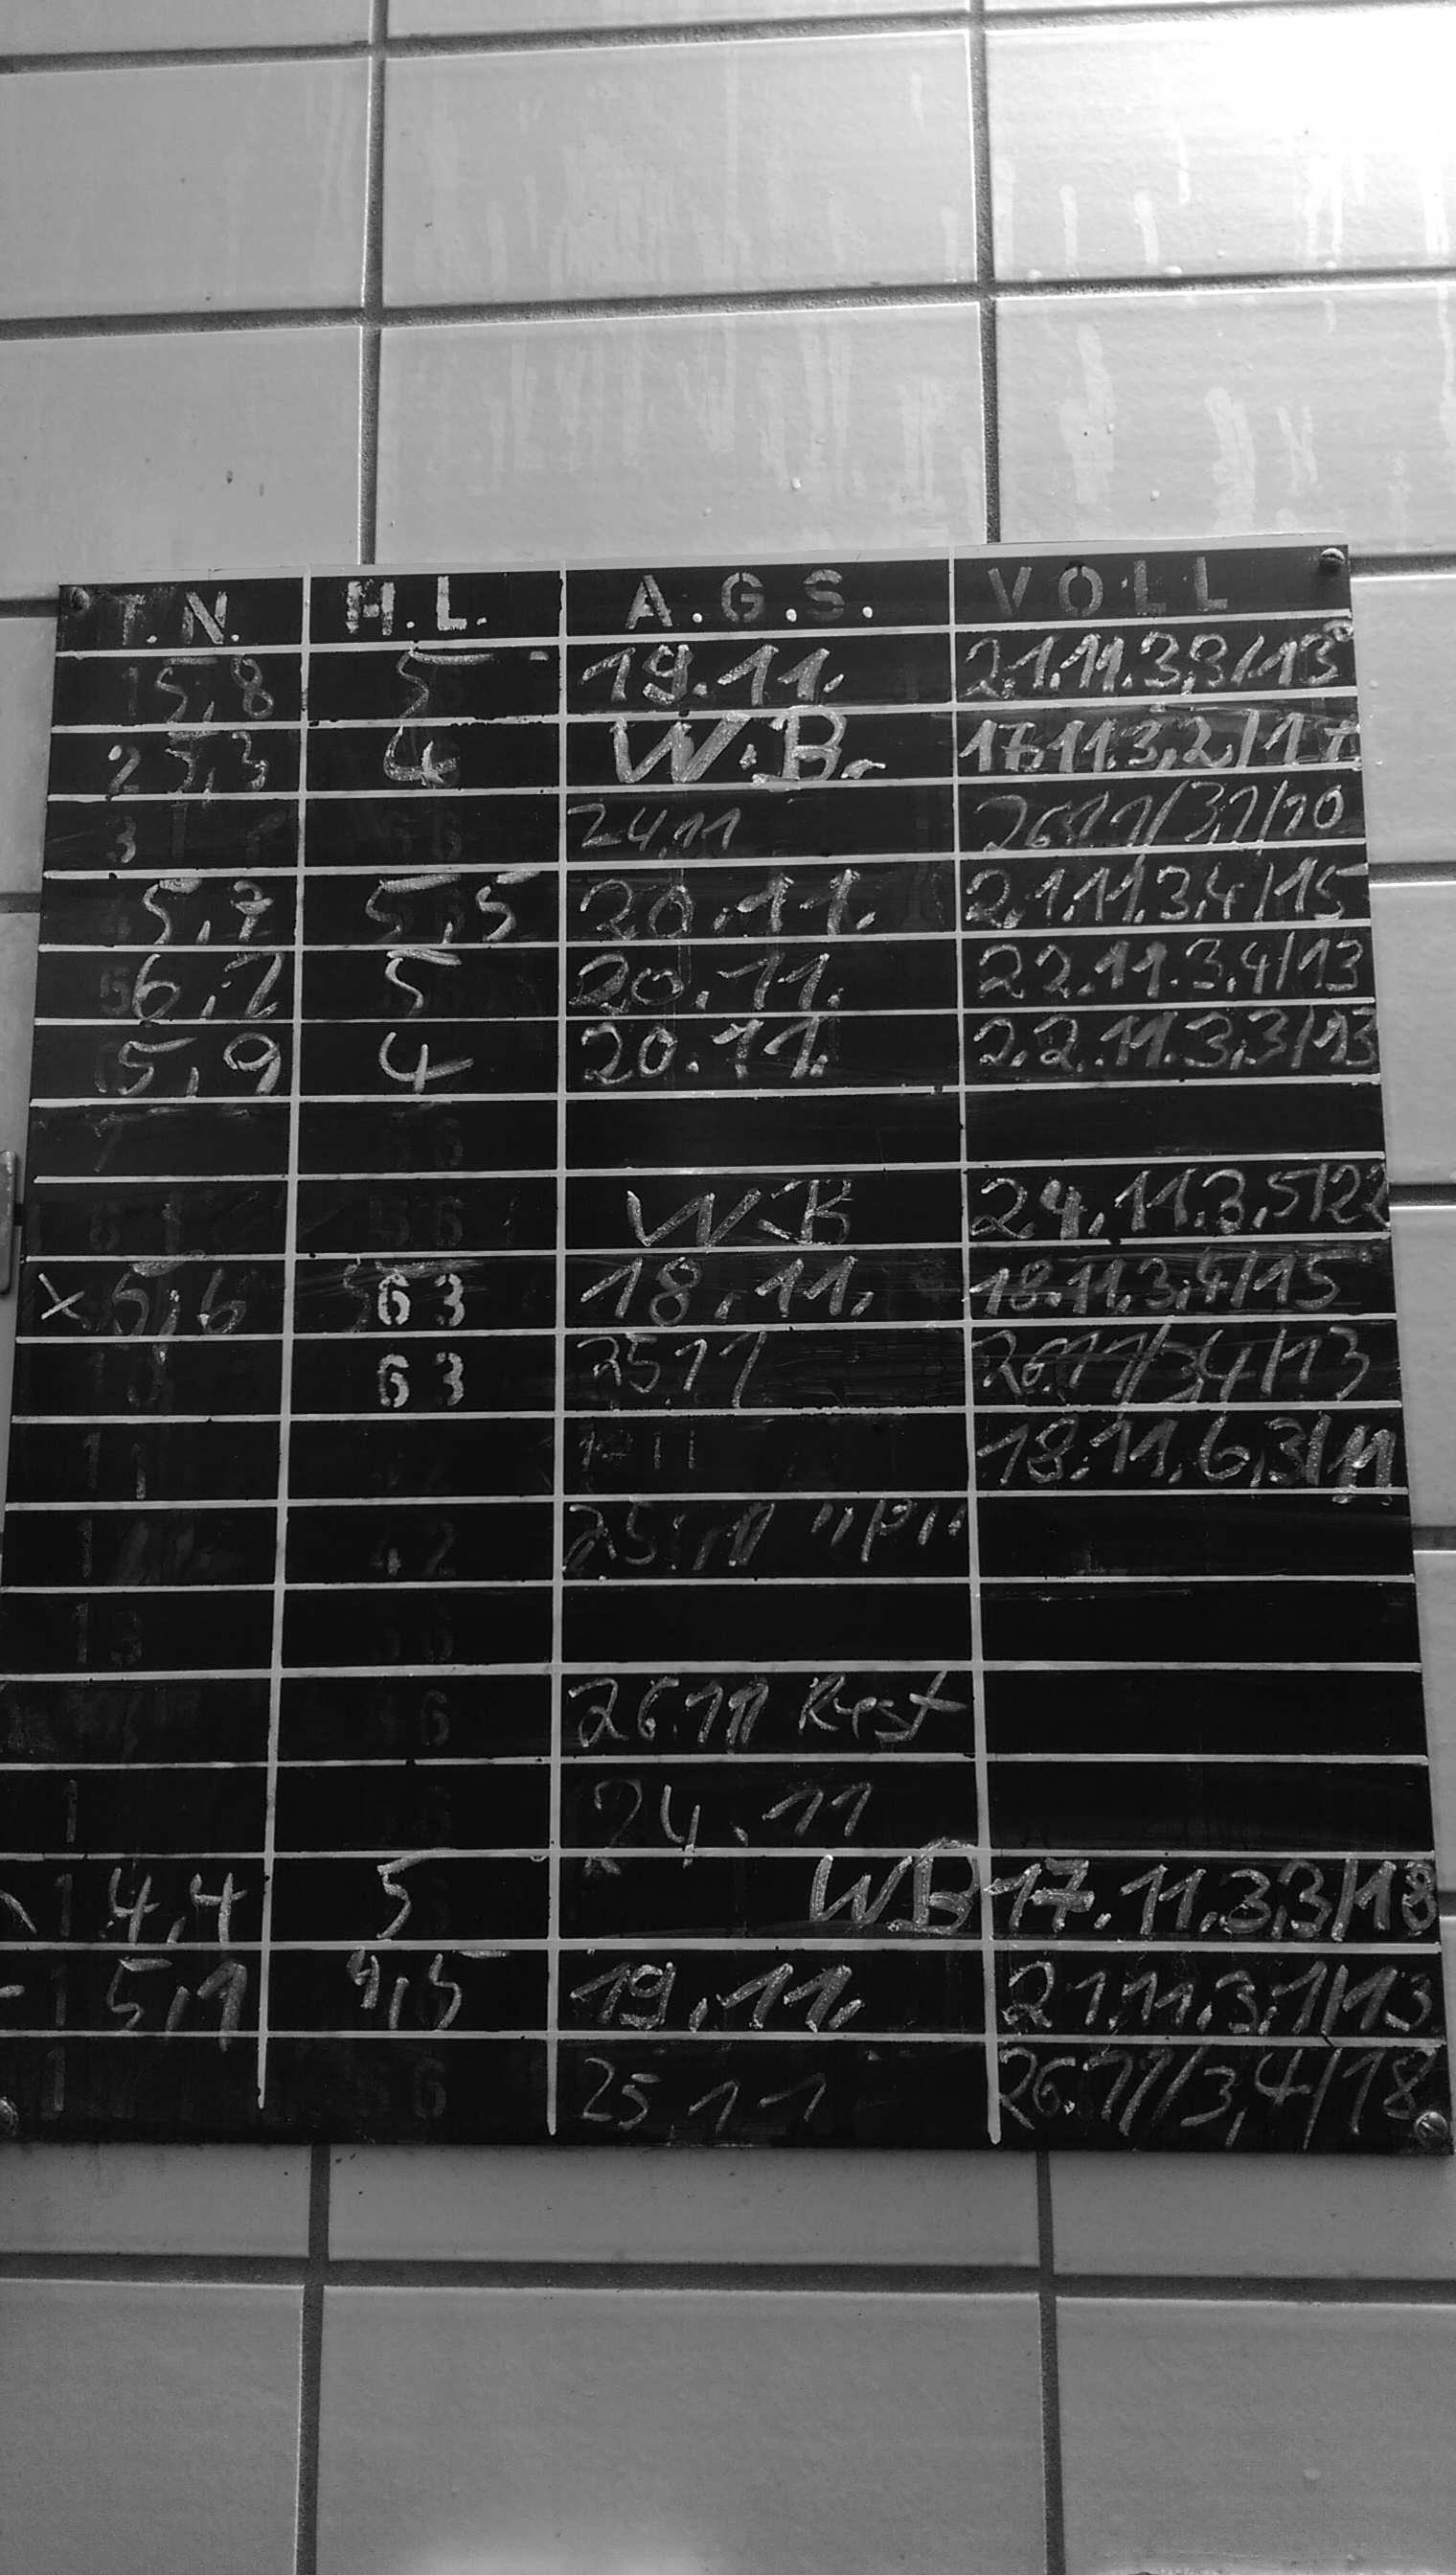 T.N. H.L. A.G.S. VOLL
1 5,8 5 19.11. 21.11.3,3/13
2 5,3 4 W.B. 17.11.3,2/17
3 24.11 26.11/3,1/10
5,7 5,5 20.11. 21.11.3,4/15
6,2 5 20.11. 22.11.3,4/13
5,9 4 20.11. 22.11.3,3/13
7
W.B 24.11.3,5/22
x 5,6 63 18.11. 18.11.3,4/15
10 63 25.11 26.11/3,4/13
11 18.11.6,3/11
1 42 25.11
13
26.11 Rest
1 24.11
1 4,4 5 WB 17.11.3,3/18
1 5,1 4,5 19.11. 21.11.3,1/13
1 25.11 26.11/3,4/18